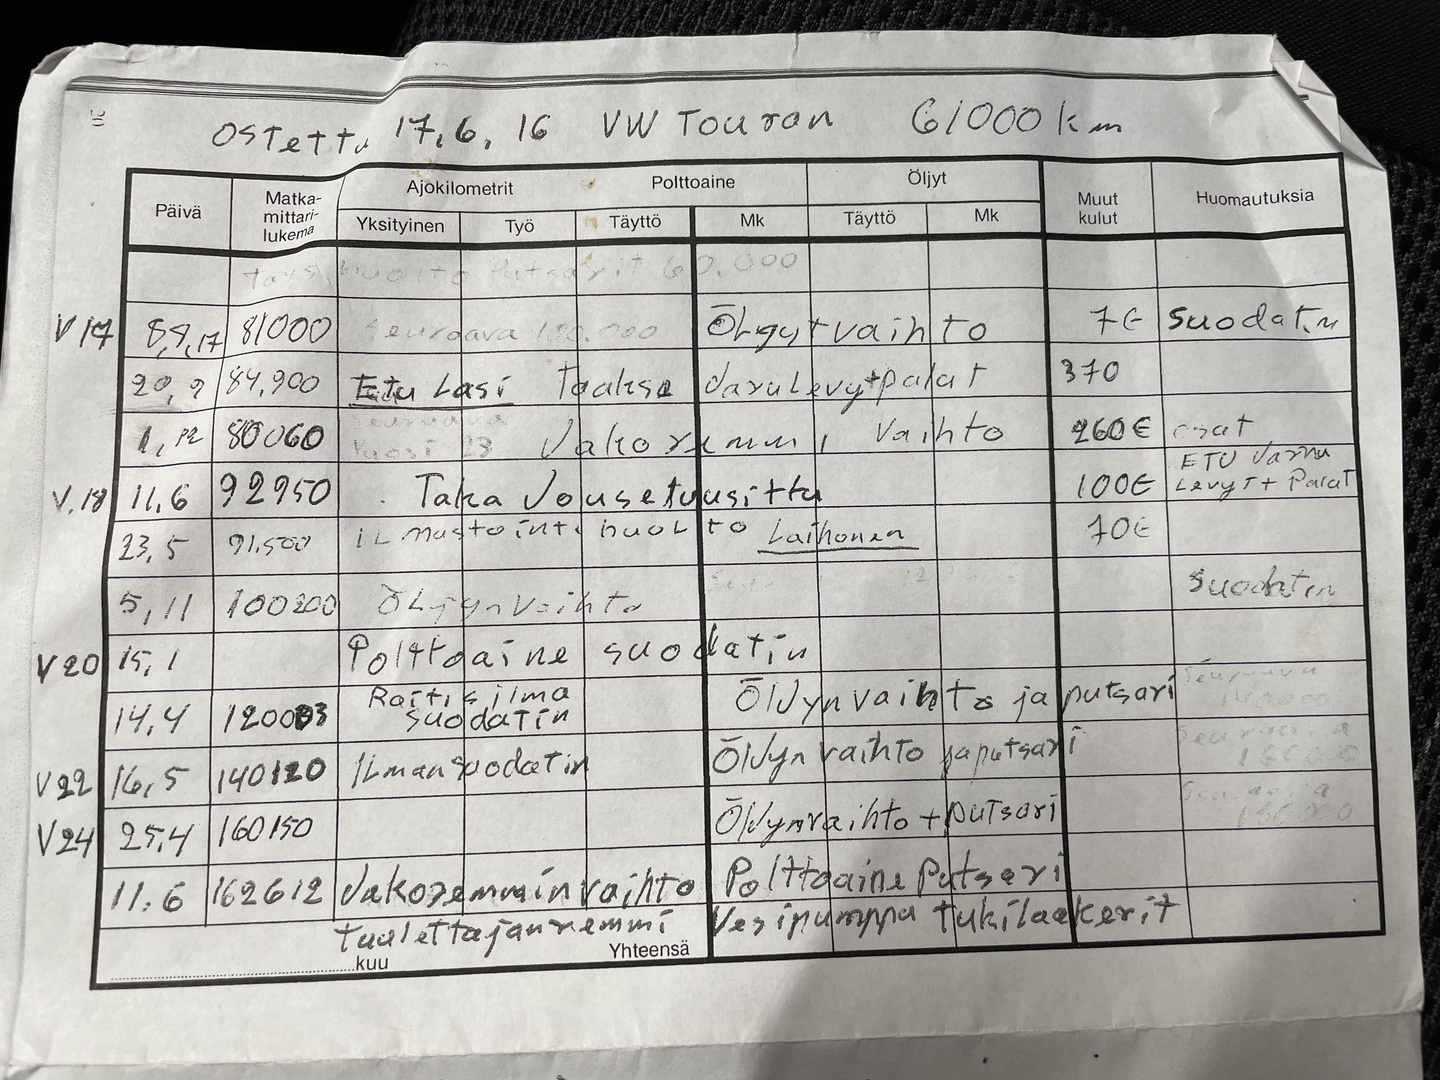 Ostettu 17,6,16 VW Touran 61000 km
Ajokilometrit Polttoaine Öljyt
Päivä Matka-mittari-lukema Muut kulut Huomautuksia
Yksityinen Työ Täyttö Mk Täyttö Mk
huolto Putsarit 60,000
V17 8,9,17 81000 Seuraava 100.000 Öljyt vaihto 7€ Suodatin
20,9 84,900 Etu Lasi Taakse Jarulevyt+palat 370
1,12 80060 Seuraava Vuosi 23 Jakoremmi vaihto 260€ osat
V.18 11,6 92950 Taka Jousetuusittu 100€ ETU Jarru Levyt+Palat
23,5 91,500 ilmastointi huolto Laihonen 70€
5,11 100200 Öljynvaihto Suodatin
V20 15,1 Polttoaine suodatin
14,4 120003 Raitis ilma suodatin Öljynvaihto ja putsari Seuraava 140000
V22 16,5 140120 ilmansuodatin Öljynvaihto ja putsari Seuraava
V24 25,4 160150 Öljynvaihto + putsari Seuraava 180.000
11.6 162612 Jakoremminvaihto Polttoaine Putsari
tuulettajanremmi Vesipumppu tukilaakerit
kuu Yhteensä